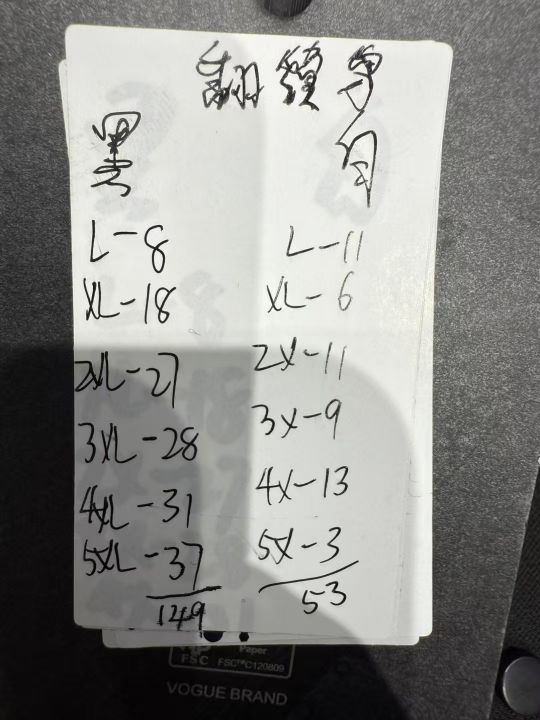 翻
黑
L-8
XL-18
2XL-27
3XL-28
4XL-31
5XL-37
149
L-11
XL-6
2X-11
3X-9
4X-13
5X-3
53
Paper
FSC FSC™C120809
VOGUE BRAND